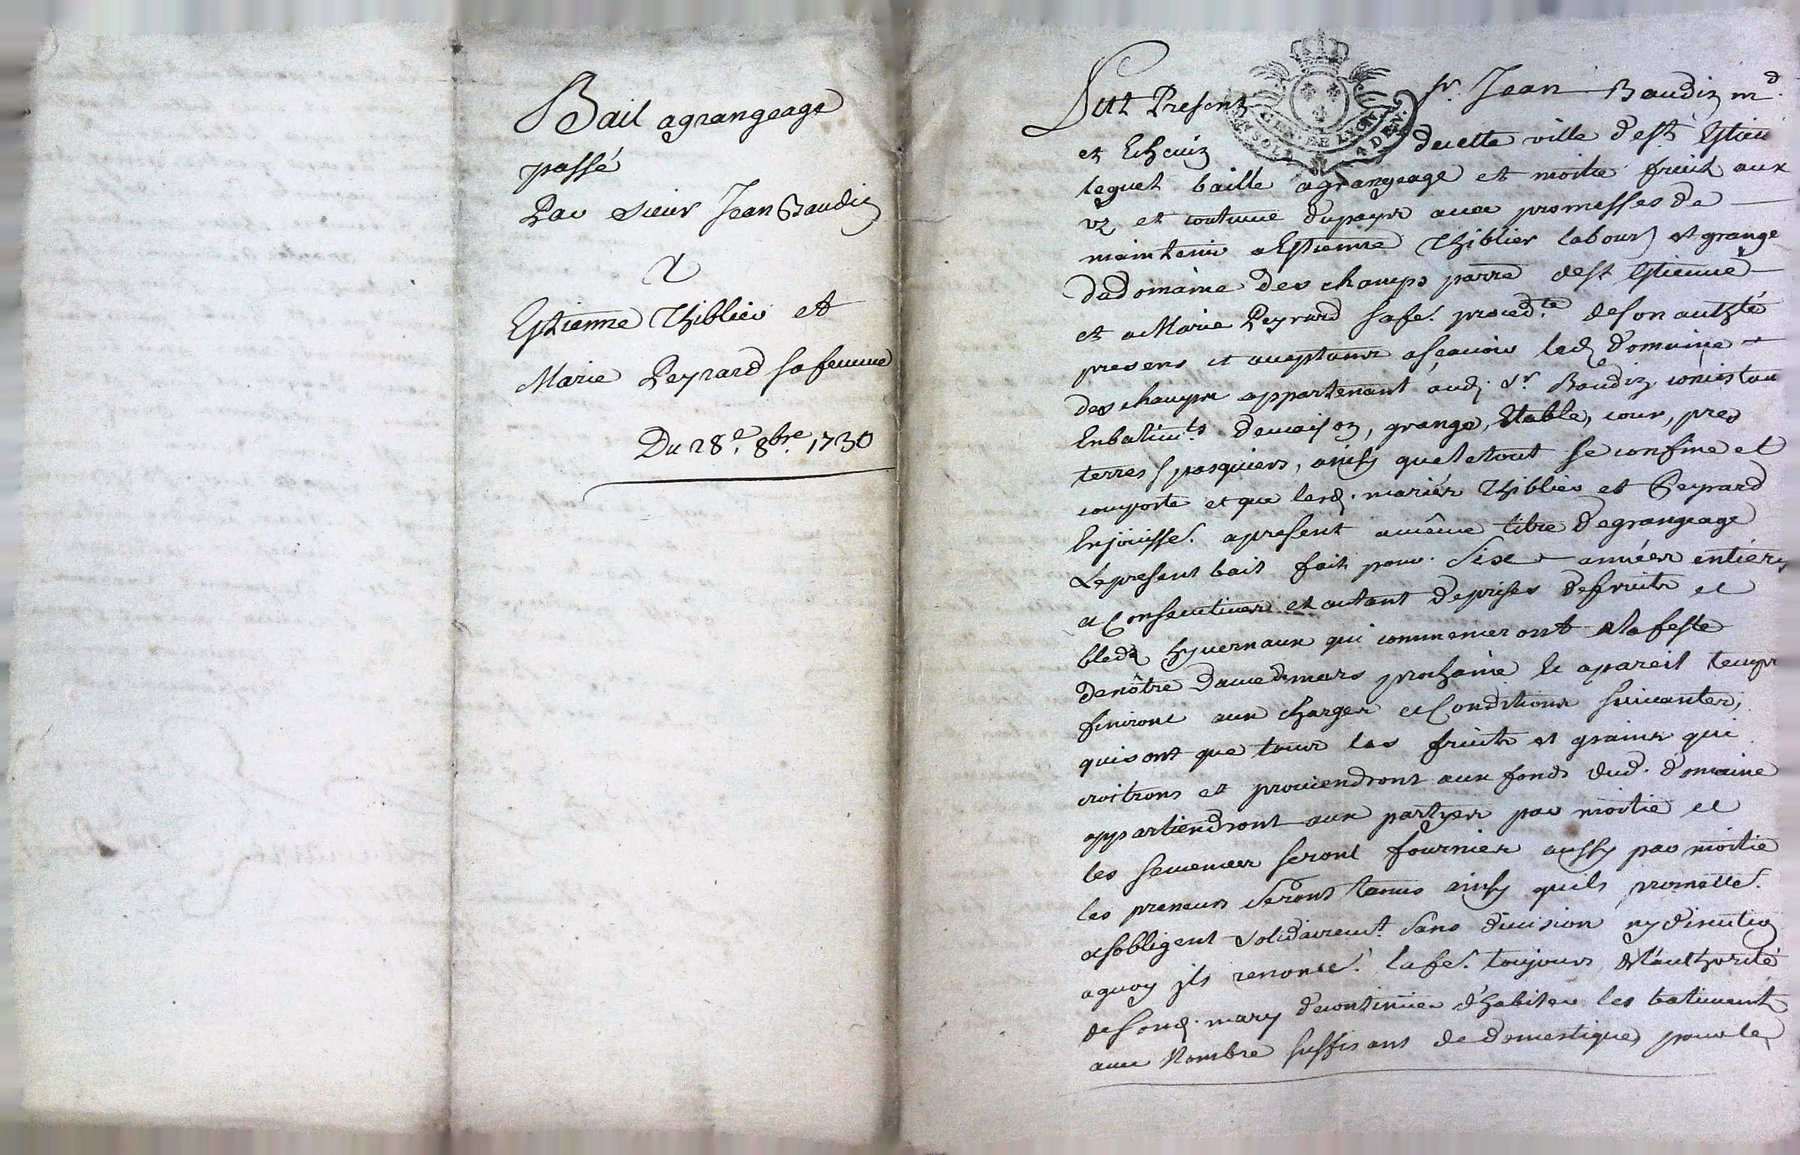 Bail agrangeage
passé
Par sieur Jean Baudin
A
Estienne Thiblier et
Marie Peyrard sa femme
Du 28e. 8bre. 1730
GEN. DE LYON
UN SOL 4 DEN.
Fut Present sr. Jean Baudin md.
et Echevin de cette ville de st. Estienne
lequel baille agrangeage et moitié fruit aux
us et coutume du pays avec promesses de
maintenir a Estienne Thiblier labour et grange
du domaine des champs parre. de st Estienne
et a Marie Peyrard sa fe. proced.te de son authté
presens et acceptans a scavoir led. domaine
des champs appartenant aud. sr. Baudin consistant
En batim.ts de maison, grange, Etable, cour, pres
terres, pasquiers, ainsy que le tout se confine et
comporte et que lesd. mariés Thiblier et Peyrard
En jouisse. a present a même titre de grangeage
Le present bail fait pour Six années entières
et Consecutives et autant de prises de fruits et
bleds hyvernaux qui commenceront a la feste
de nôtre dame de mars prochaine et a pareil temps
finiront aux charges et Conditions suivantes,
qui sont que tous les fruits et grains qui
croitrons et proviendront aux fonds dud. domaine
appartiendront aux partyes par moitié et
les semences seront fournies aussy par moitié
les preneurs seront tenus ainsy quils promette.
et sobligent solidairem.t sans division ny discution
a quoy ils renonce. la fe. toujours de lauthorité
de sond. mary de continuer d'habiter les batiments
avec Nombre suffisans de domestiques pour les